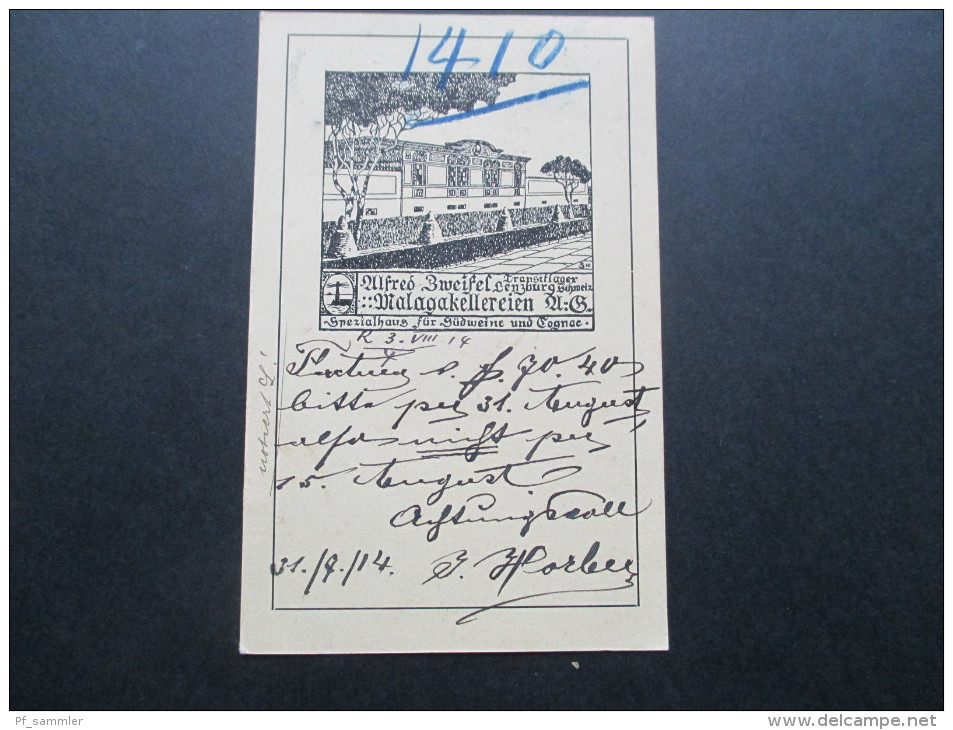 1410
Alfred Zweifel Transitlager Lenzburg Schweiz
::Malagakellereien A:G.
·Spezialhaus für Südweine und Cognac·
R 3. VIII 14
notiert
v. f. 70.40
bitte per 31. August
also nicht per
15. August
Achtungsvoll
31./7./14. J. Horber
Pf_sammler
www.delcampe.net